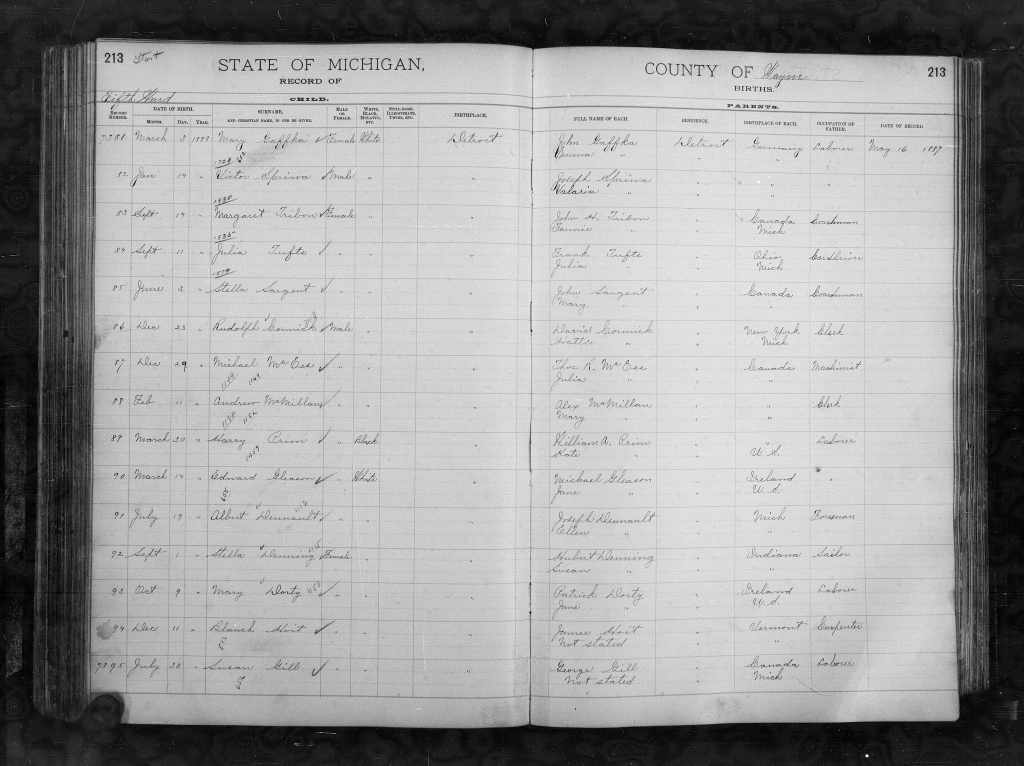 213
STATE OF MICHIGAN,
RECORD OF
Fifth Ward
CHILD.
RECORD NUMBER. DATE OF BIRTH. MONTH. DAY. YEAR. SURNAME, AND CHRISTIAN NAME, IF ONE BE GIVEN. MALE OR FEMALE. WHITE, BLACK, MULATTO, ETC. STILL-BORN, ILLEGITIMATE, TWINS, ETC. BIRTHPLACE.
March 3 Mary Gaffka Female White Detroit
82 Jan 19 " Victor Male " "
83 Sept 19 " Margaret Female " "
84 Sept 11 " Julia Tufts " " "
85 June 3 " Stella Sargent " " "
86 Dec 23 " Rudolph Cormick Male " "
87 Dec 29 " Michael " " "
88 Feb 11 " Andrew McMillan " " "
89 March 20 " Harry " Black "
90 March 14 " Edward Gleason " White "
91 July 19 " Albert " " "
92 Sept 1 " Stella Denning Female " "
93 Oct 9 " Mary Dorty " " "
94 Dec 11 " Blanch Hoit " " "
7395 July 20 " Susan Gill " " "
COUNTY OF Wayne
213
BIRTHS.
PARENTS.
FULL NAME OF EACH. RESIDENCE. BIRTHPLACE OF EACH. OCCUPATION OF FATHER. DATE OF RECORD.
John Gaffka Detroit Germany Laborer May 16 1887
Emma " " "
Joseph " " "
Valaria " "
John H. " Canada Coachman
Fannie " Mich
Frank Tufts " Ohio Car Driver
Julia " Mich
John Sargent " Canada Coachman
Mary " "
David Cormick " New York Clerk
Hattie " Mich
Thos R. " Canada Machinist
Julia " "
Alex McMillan " " Clerk
Mary " "
William A. " " Laborer
Kate " U.S.
Michael Gleason " Ireland "
Jane " U.S.
Joseph " Mich Foreman
Ellen " "
Hubert Denning " Indiana Sailor
Susan " "
Patrick Dorty " Ireland Laborer
Jane " U.S.
James Hoit " Vermont Carpenter
Not stated "
George Gill " Canada Laborer
Not stated Mich